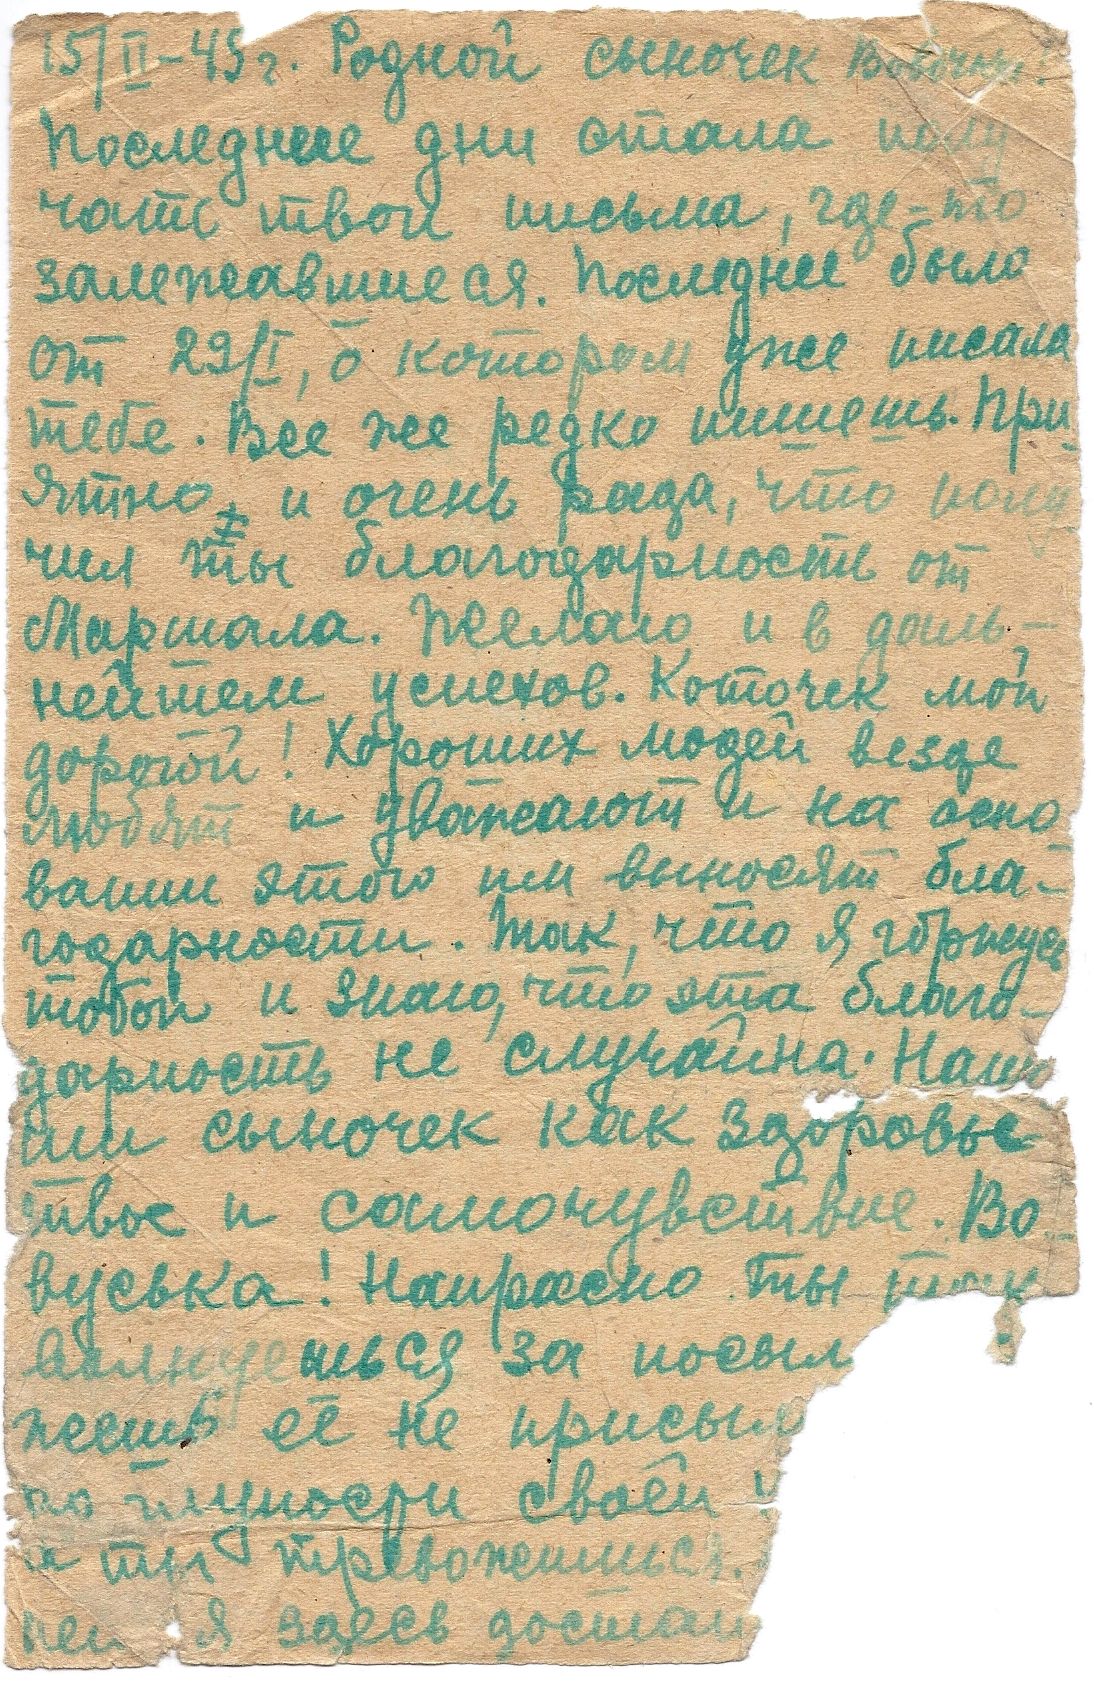 15/II-45г. Родной сыночек Вовочка!
Последнее дни стала полу
чать твои письма, где-то
залежавшиеся. Последнее было
от 29/I, о котором уже писала
тебе. Все же редко пишешь. При
ятно и очень рада, что полу
чил ты благодарность от
Маршала. Желаю и в даль-
нейшем успехов. Коточек мой
дорогой! Хороших людей везде
любят и уважают и на осно
вании этого им выносят бла-
годарности. Так, что я горжусь
тобой и знаю, что эта благо-
дарность не случайна. Напи
ши сыночек как здоровье
твое и самочувствие. Во-
вуська! Напрасно ты так
волнуешься за посыл
жешь её не присыл
по глупости своей
а ты тревожишься.
я здесь достан